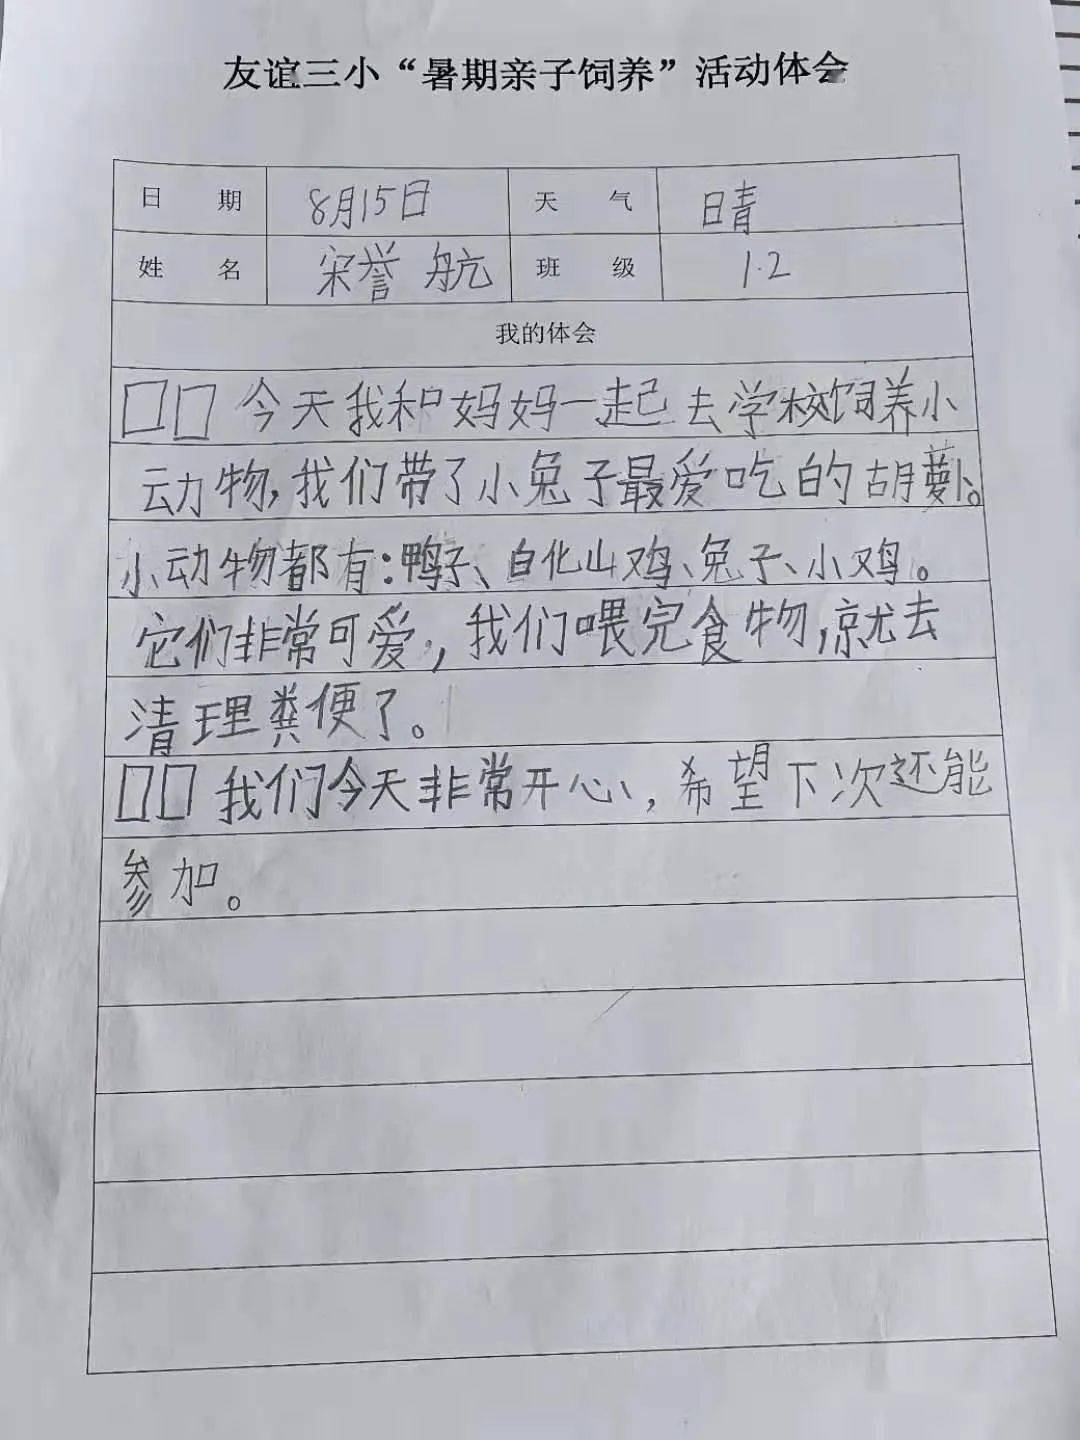 友谊三小“暑期亲子饲养”活动体会
日 期 8月15日 天 气 晴
姓 名 宋誉航 班 级 1.2
我的体会
□□今天我和妈妈一起去学校饲养小
动物,我们带了小兔子最爱吃的胡萝卜。
小动物都有:鸭子、白化山鸡、兔子、小鸡。
它们非常可爱,我们喂完食物,就去
清理粪便了。
□□我们今天非常开心,希望下次还能
参加。